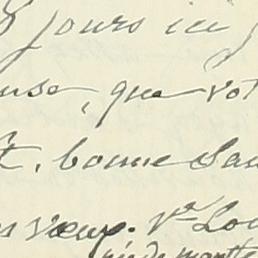 jours ici
que vot
t, bonne San
vœux. Vve Lou